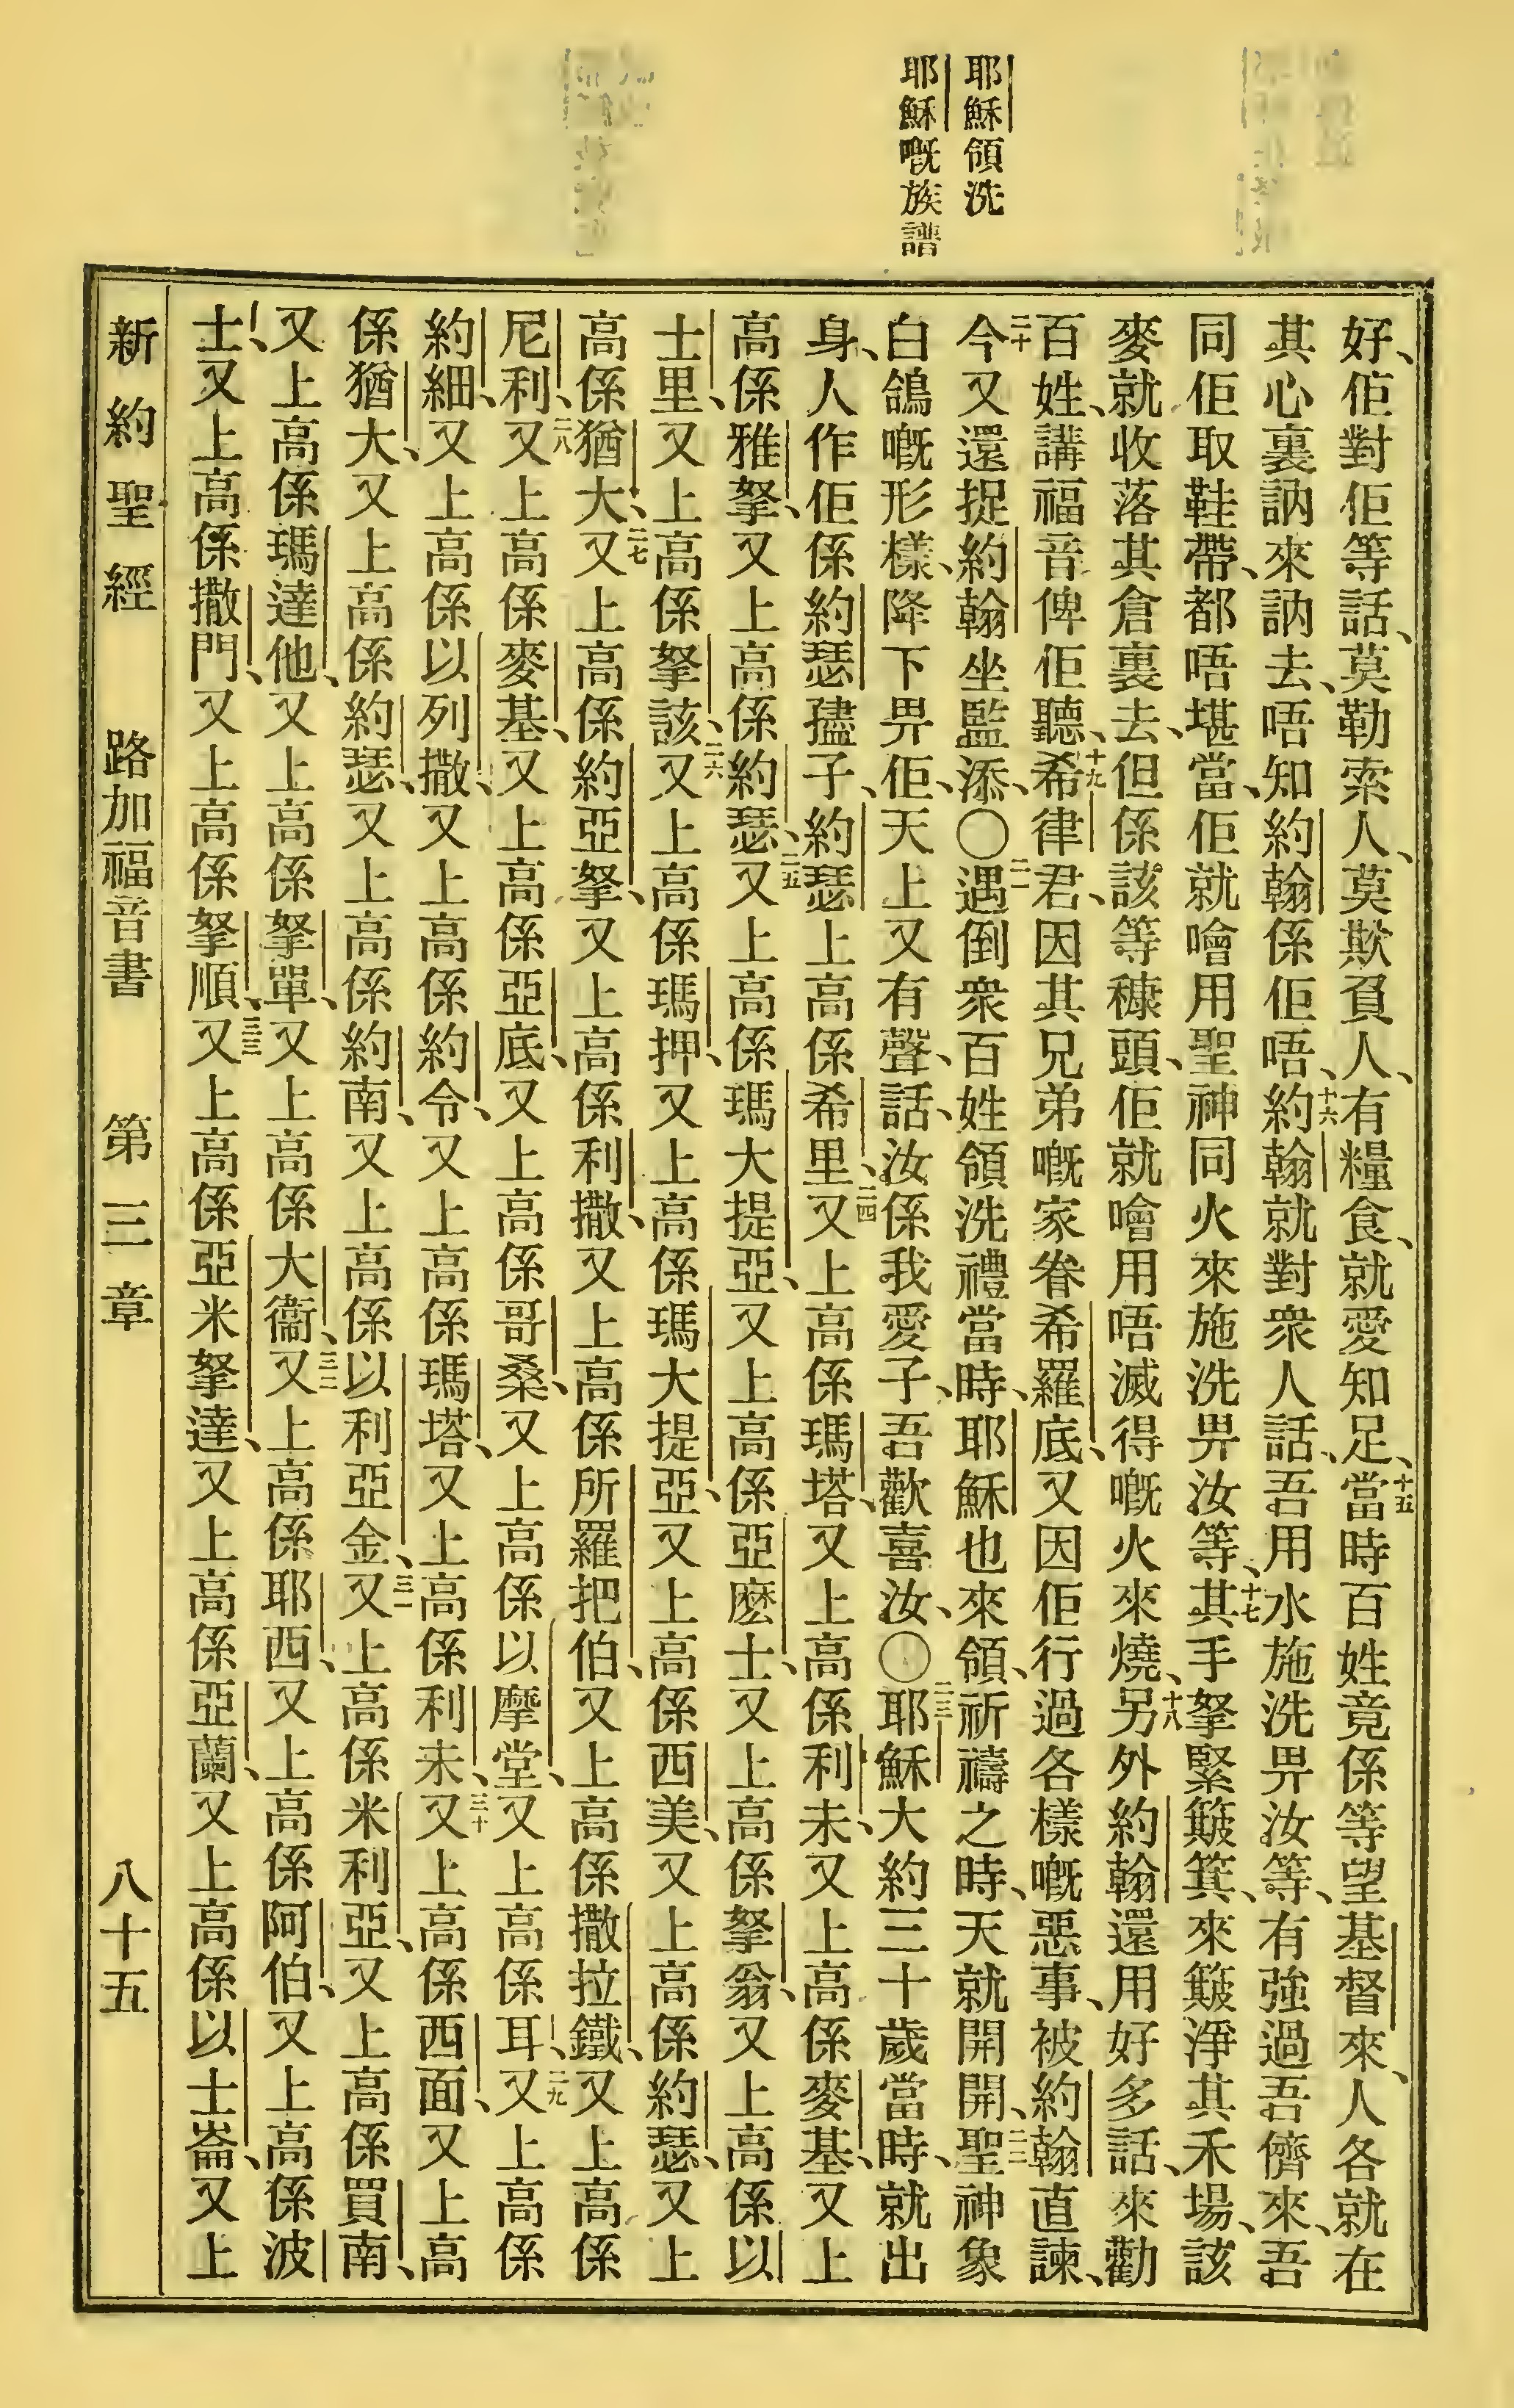 耶穌領洗
耶穌嘅族譜
好、佢對佢等話、莫勒索人、莫欺負人、有糧食、就愛知足、十五當時百姓竟係等望基督來、人各就在
其心裏訥來訥去、唔知約翰係佢唔、十六約翰就對衆人話、吾用水施洗畀汝等、有強過吾儕來、吾
同佢取鞋帶、都唔堪當、佢就噲用聖神同火來施洗畀汝等、十七其手拏緊簸箕、來簸淨其禾場、該
麥就收落其倉裏去、但係該等穅頭、佢就噲用唔滅得嘅火來燒、十八另外約翰還用好多話、來勸
百姓、講福音俾佢聽、十九希律君、因其兄弟嘅家眷希羅底、又因佢行過各樣嘅惡事、被約翰直諫、
二十今又還捉約翰坐監添、〇二一遇倒衆百姓領洗禮當時、耶穌也來領、祈禱之時、天就開開、二二聖神象
白鴿嘅形樣、降下畀佢、天上又有聲、話、汝係我愛子、吾歡喜汝、〇二三耶穌大約三十歲當時、就出
身、人作佢係約瑟孻子、約瑟上高係希里、二四又上高係瑪塔、又上高係利未、又上高係麥基、又上
高係雅拏、又上高係約瑟、二五又上高係瑪大提亞、又上高係亞麽士、又上高係拏翁、又上高係以
士里、又上高係拏該、二六又上高係瑪押、又上高係瑪大提亞、又上高係西美、又上高係約瑟、又上
高係猶大、二七又上高係約亞拏、又上高係利撒、又上高係所羅把伯、又上高係撒拉鐵、又上高係
尼利、二八又上高係麥基、又上高係亞底、又上高係哥桑、又上高係以摩堂、又上高係耳、二九又上高係
約細、又上高係以列撒、又上高係約令、又上高係瑪塔、又上高係利未、三十又上高係西面、又上高
係猶大、又上高係約瑟、又上高係約南、又上高係以利亞金、三一又上高係米利亞、又上高係買南、
又上高係瑪達他、又上高係拏單、又上高係大衞、三二又上高係耶西、又上高係阿伯、又上高係波
士、又上高係撒門、又上高係拏順、三三又上高係亞米拏達、又上高係亞蘭、又上高係以士崙、又上
新約聖經 路加福音書 第三章 八十五